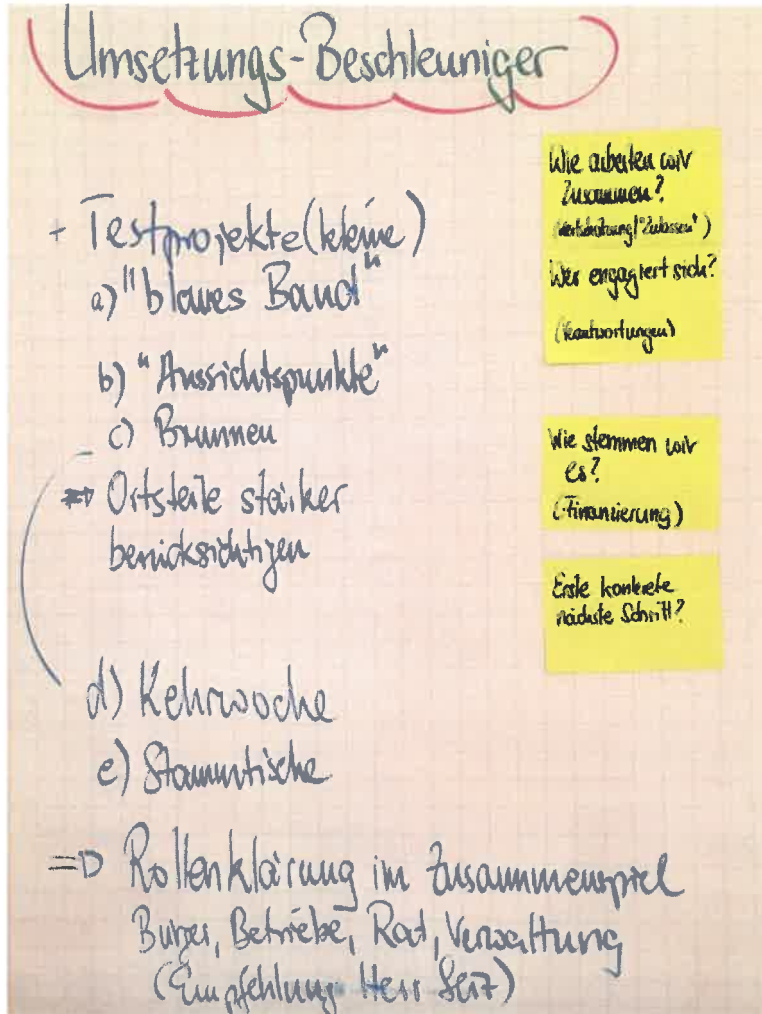 Umsetzungs-Beschleuniger
+ Testprojekte (kleine)
a) "blaues Band"
b) "Aussichtspunkte"
c) Brunnen
=> Ortsteile stärker
berücksichtigen
d) Kehrwoche
e) Stammtische
=> Rollenklärung im Zusammenspiel
Bürger, Betriebe, Rat, Verwaltung
(Empfehlung Herr
Wie arbeiten wir
zusammen?
(Wertschätzung/"Zulassen")
Wer engagiert sich?
(Verantwortungen)
Wie stemmen wir
es?
(Finanzierung)
Erste konkrete
nächste Schritt?